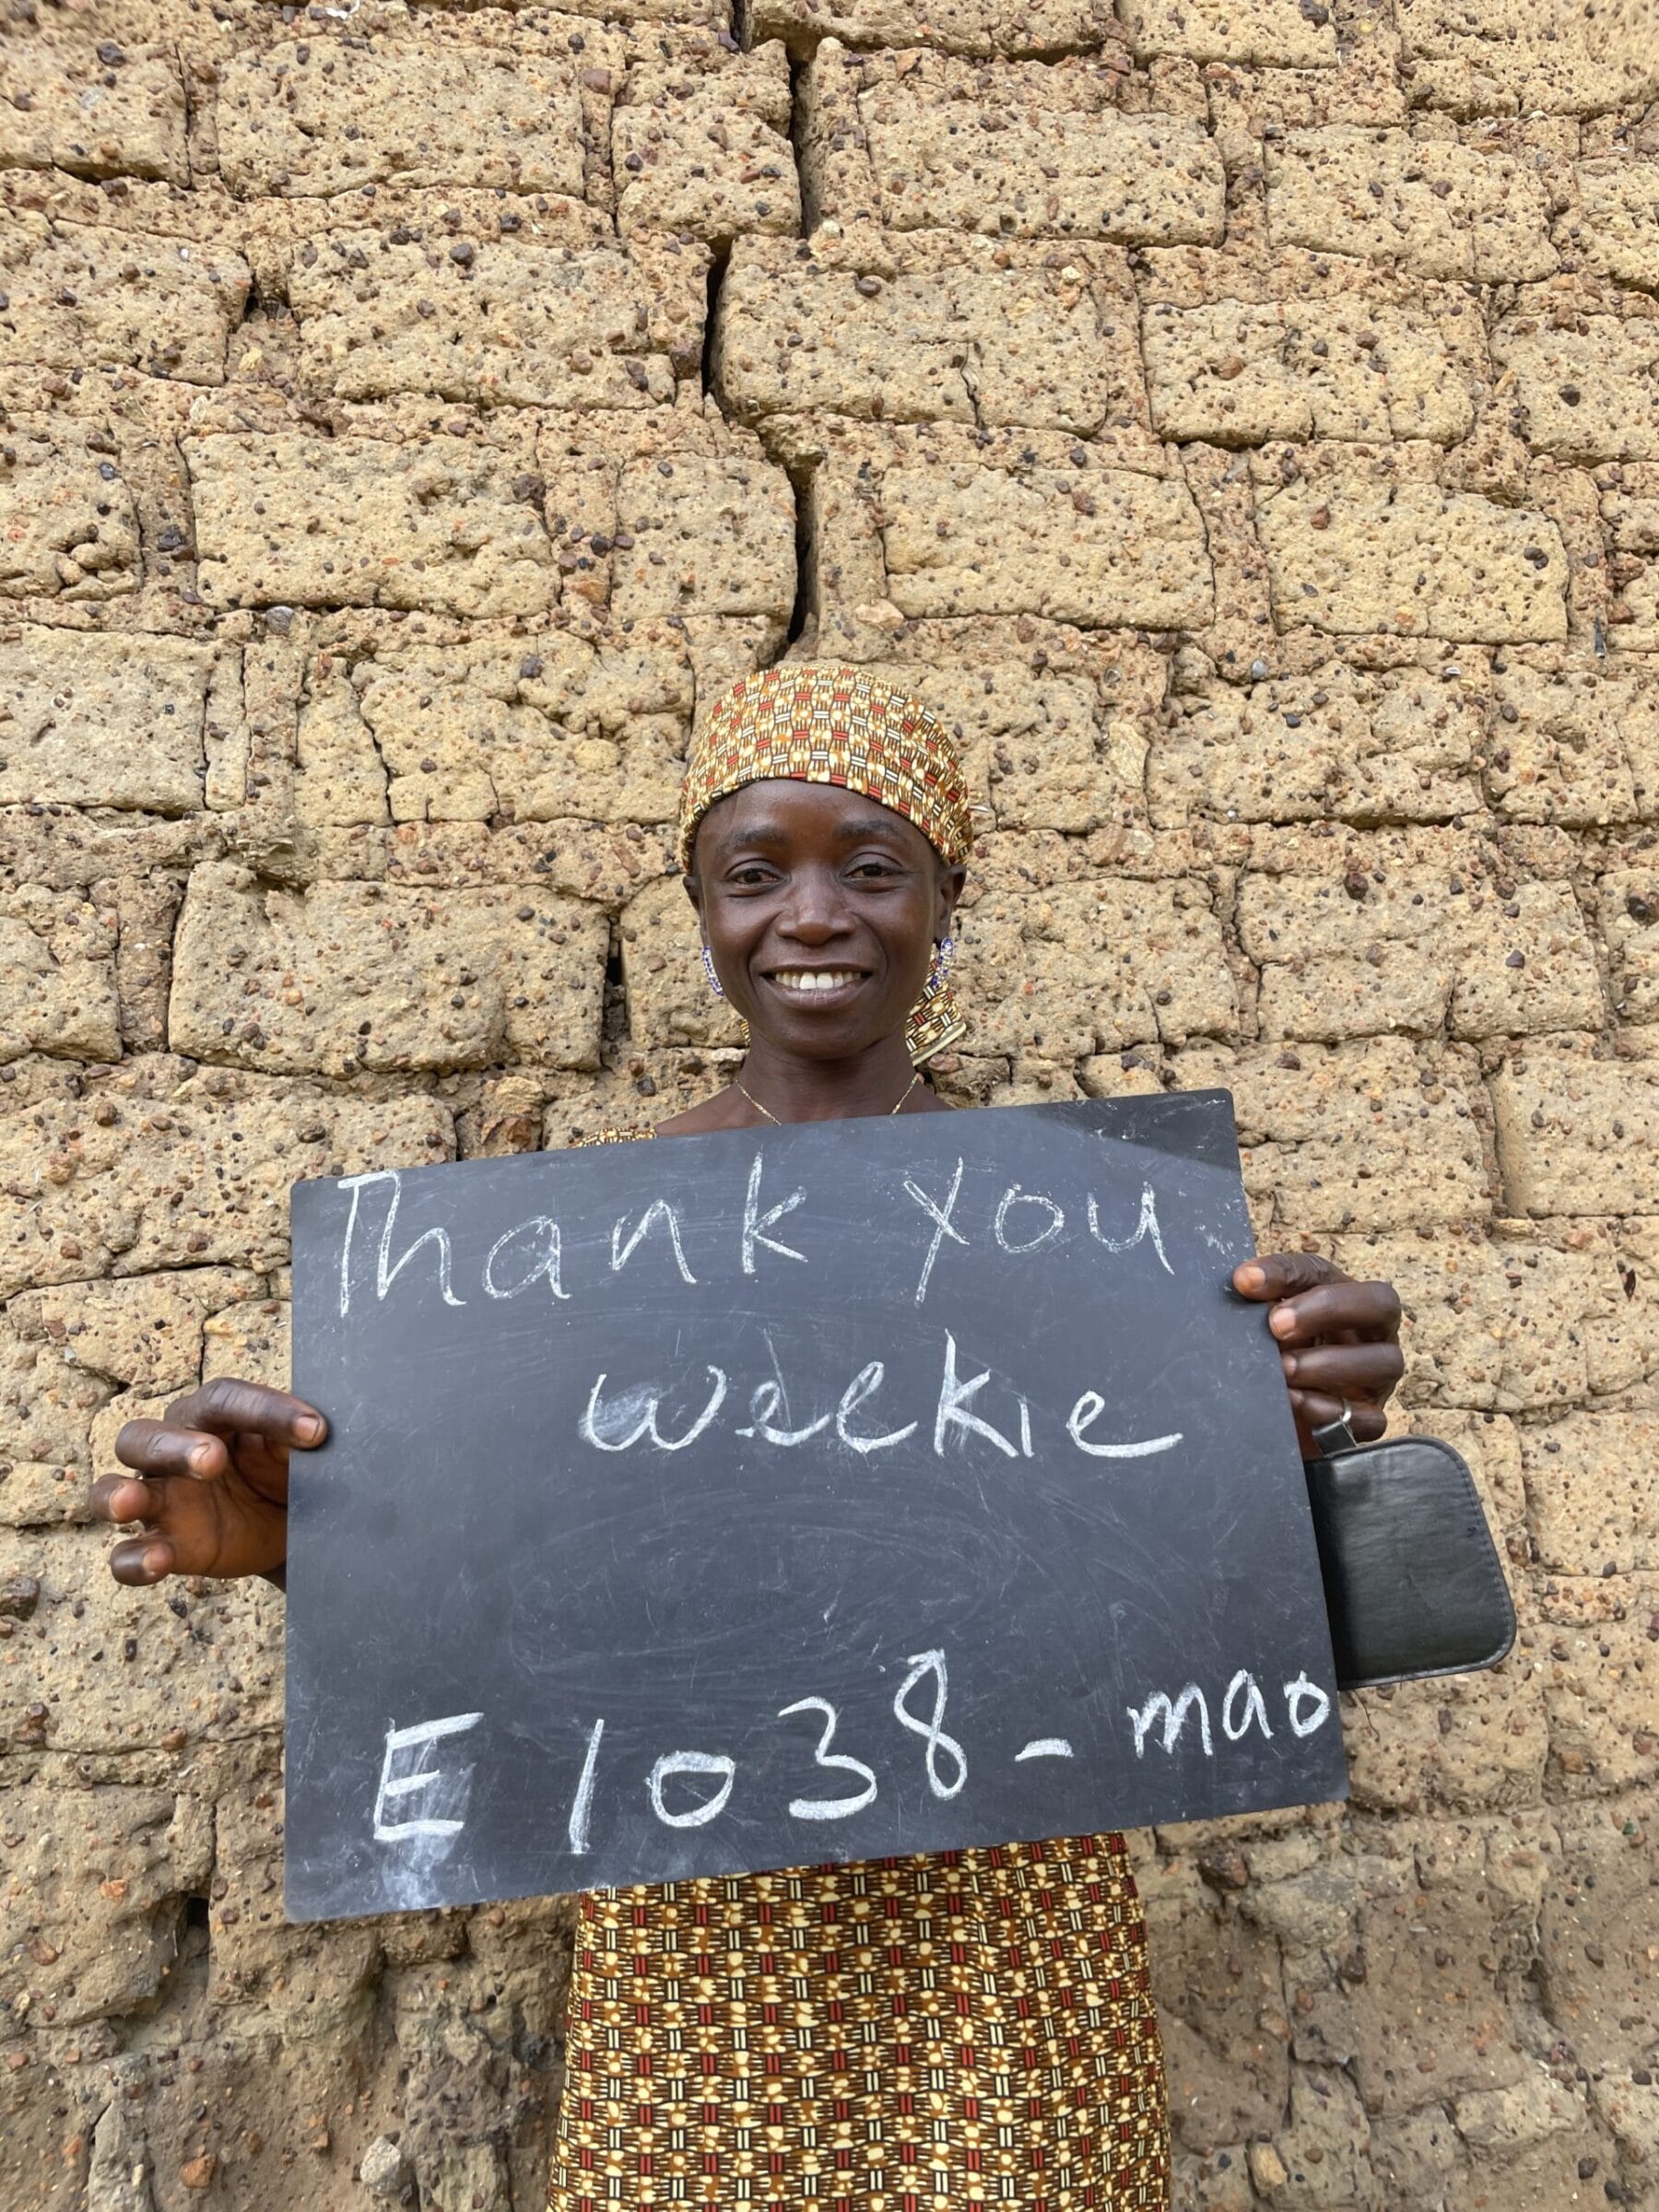 Thank you
weekie
E1038-mao